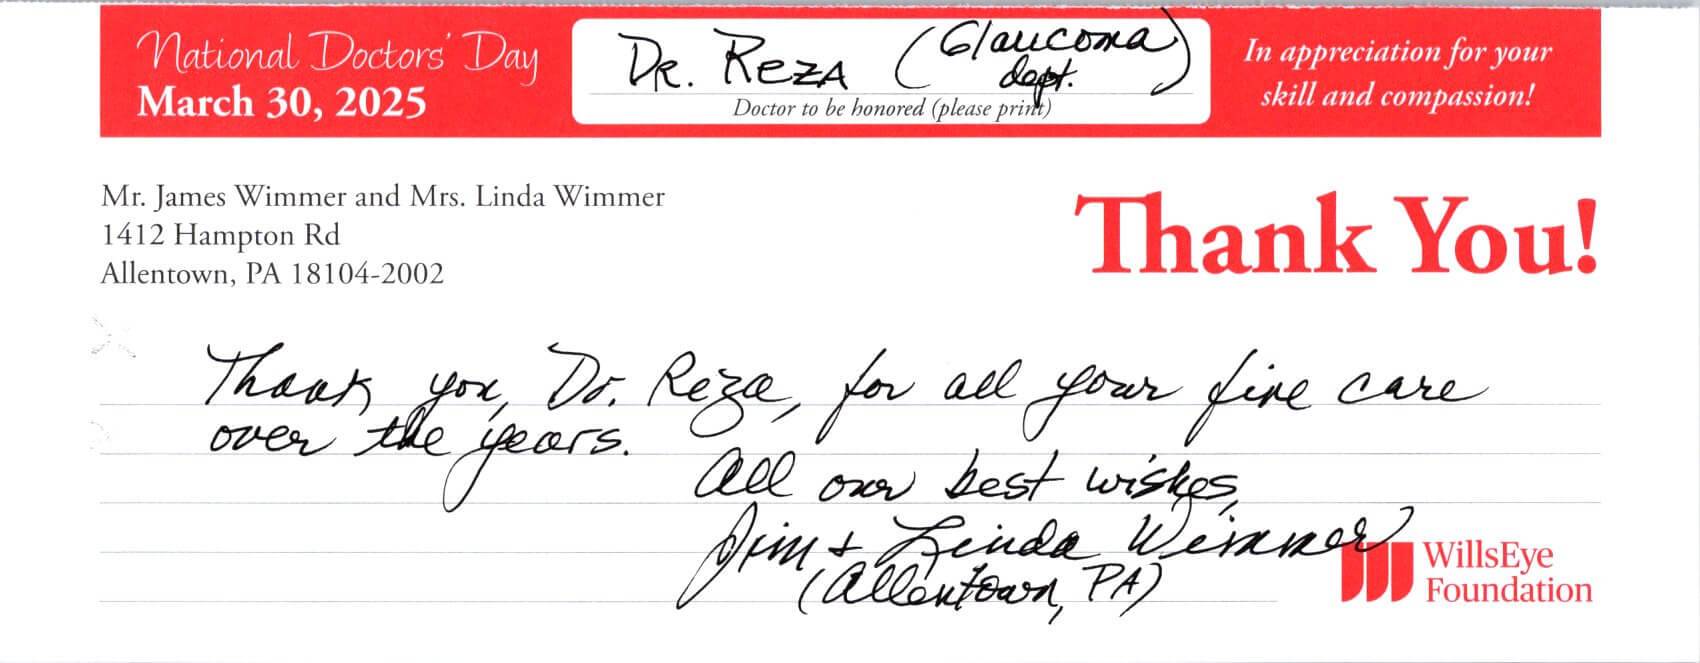 National Doctors' Day
March 30, 2025
Dr. Reza (Glaucoma
dept.)
Doctor to be honored (please print)
In appreciation for your
skill and compassion!
Mr. James Wimmer and Mrs. Linda Wimmer
1412 Hampton Rd
Allentown, PA 18104-2002
Thank You!
Thank you, Dr. Reza, for all your fine care
over the years.
All our best wishes,
Jim + Linda Wimmer
(Allentown, PA)
WillsEye
Foundation